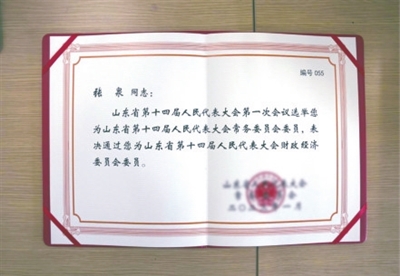 编号 055
张泉 同志：
山东省第十四届人民代表大会第一次会议选举您
为山东省第十四届人民代表大会常务委员会委员，表
决通过您为山东省第十四届人民代表大会财政经济
委员会委员。
山东省 代表大会
会
二〇 一月